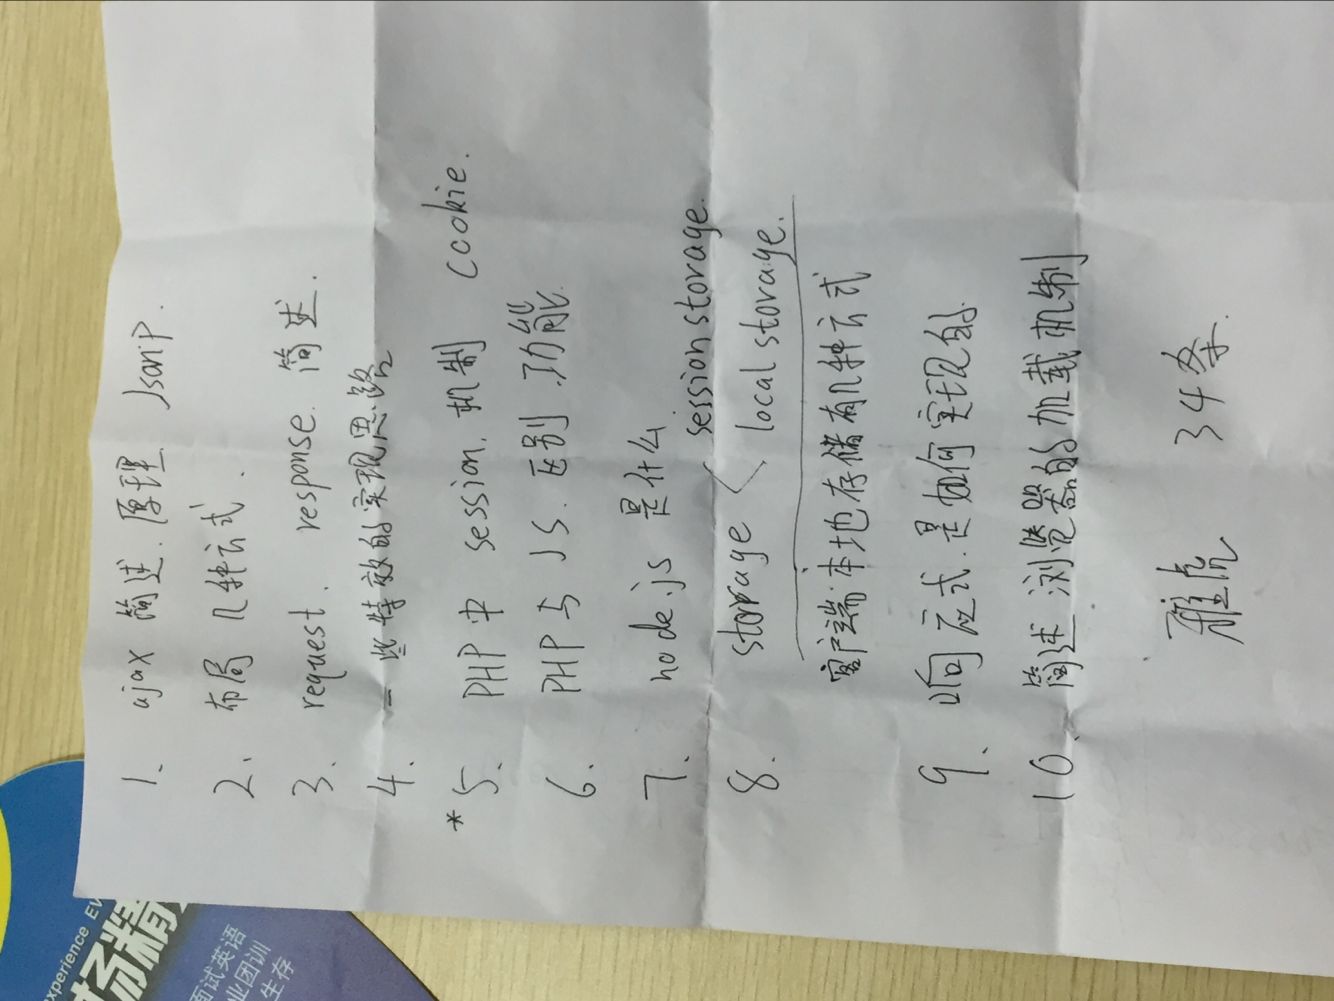 experience EV
扬精
面试英语
业团训
生存
1. ajax 简述. 原理. Jsonp.
2. 布局 几种方式.
3. request. response. 简述.
4. 一些特效的实现思路
*5. PHP中 session. 机制 cookie.
6. PHP与JS. 区别.功能.
7. node.js 是什么
8. storage < session storage.
local storage.
客户端本地存储有几种方式
9. 响应式.是如何实现的.
10. 简述 浏览器的加载机制
雅虎 34条.